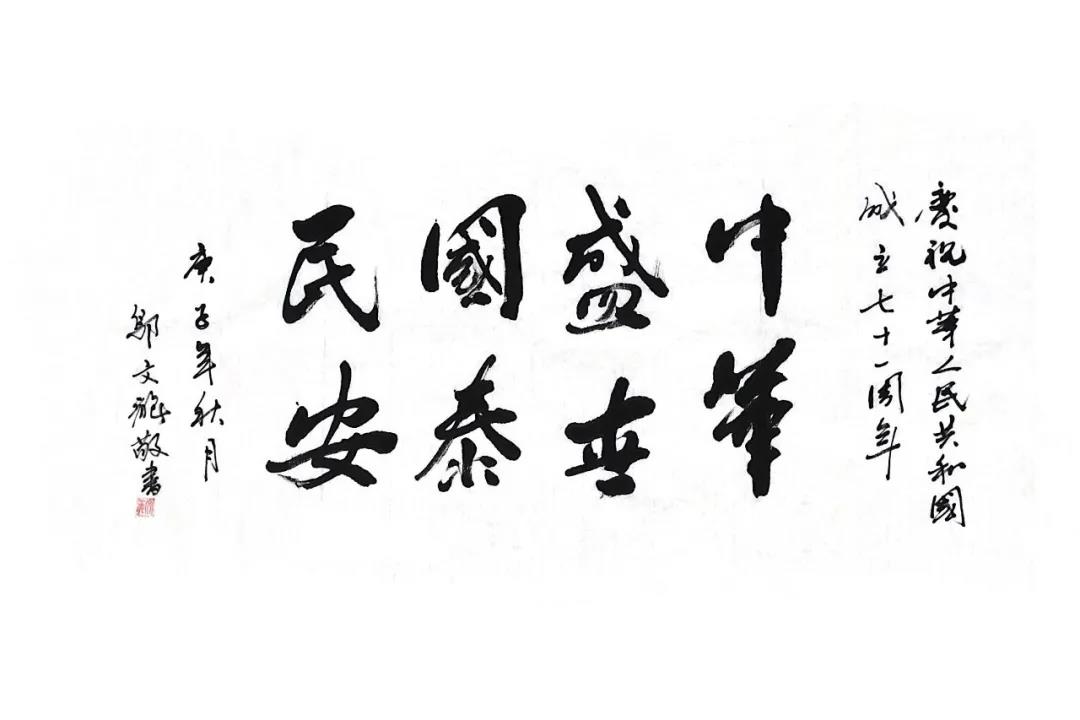 慶祝中華人民共和國
成立七十一周年
中華
盛世
國泰
民安
庚子年秋月
文 敬書